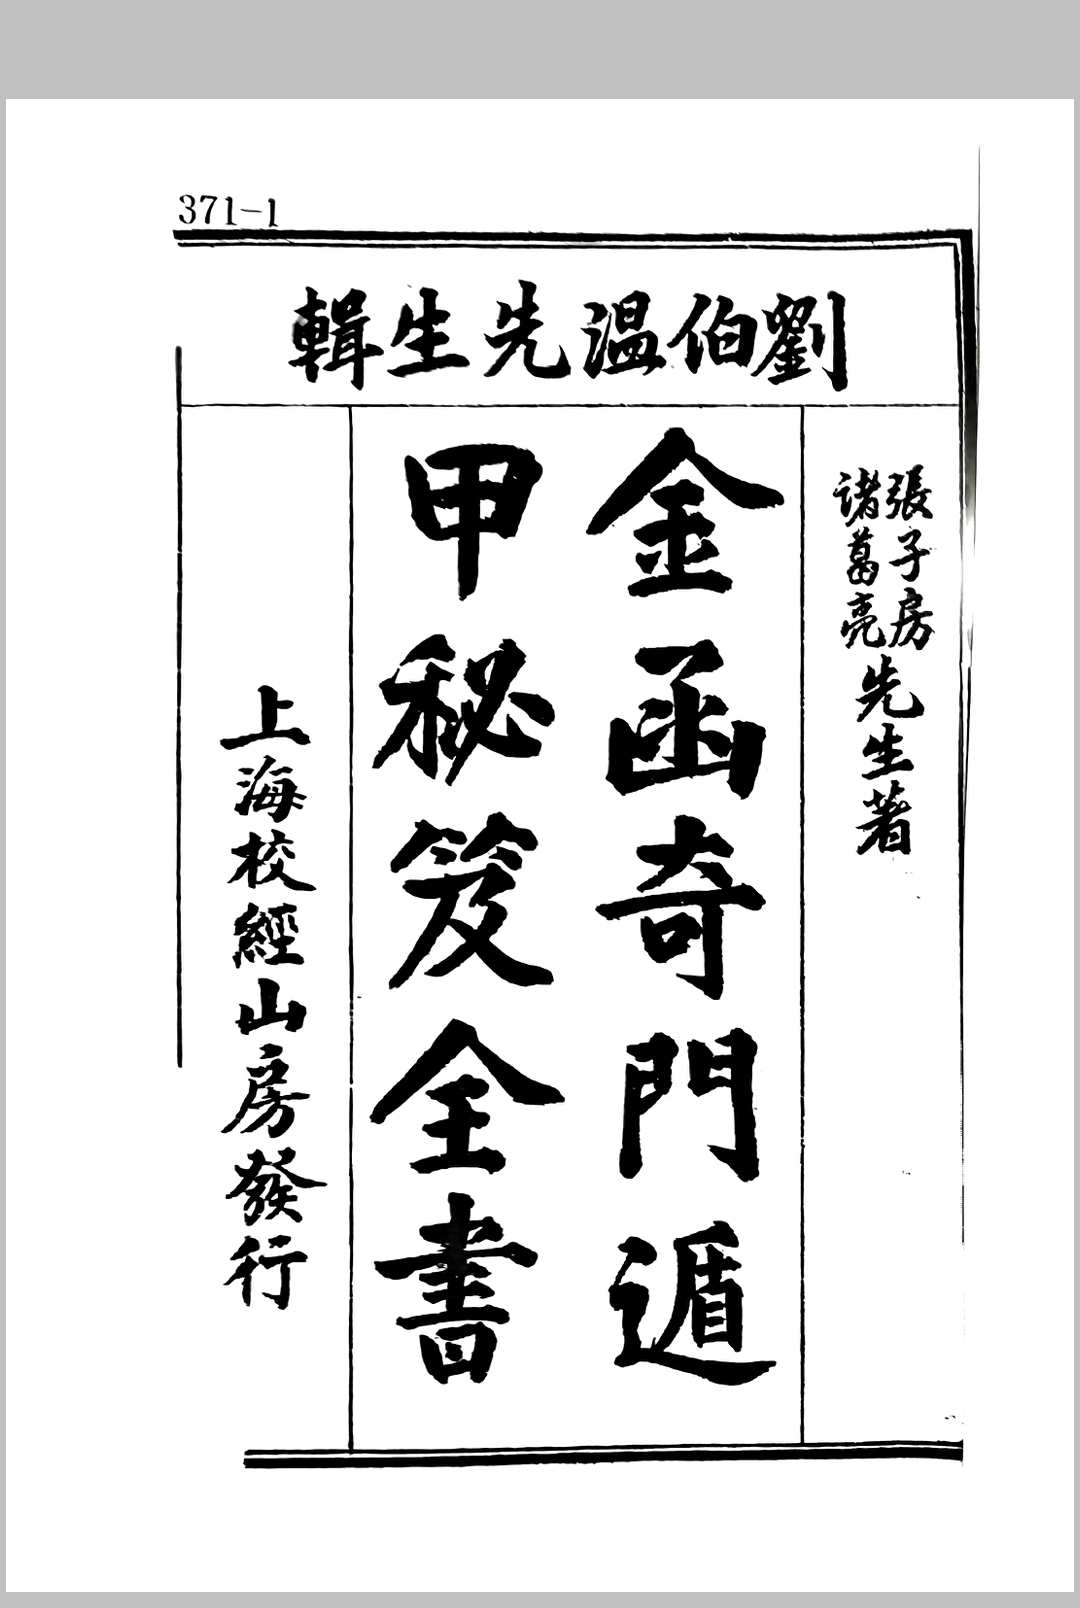 371-1
劉伯温先生輯
張子房
諸葛亮
先生著
金函奇門遁
甲秘笈全書
上海校經山房發行